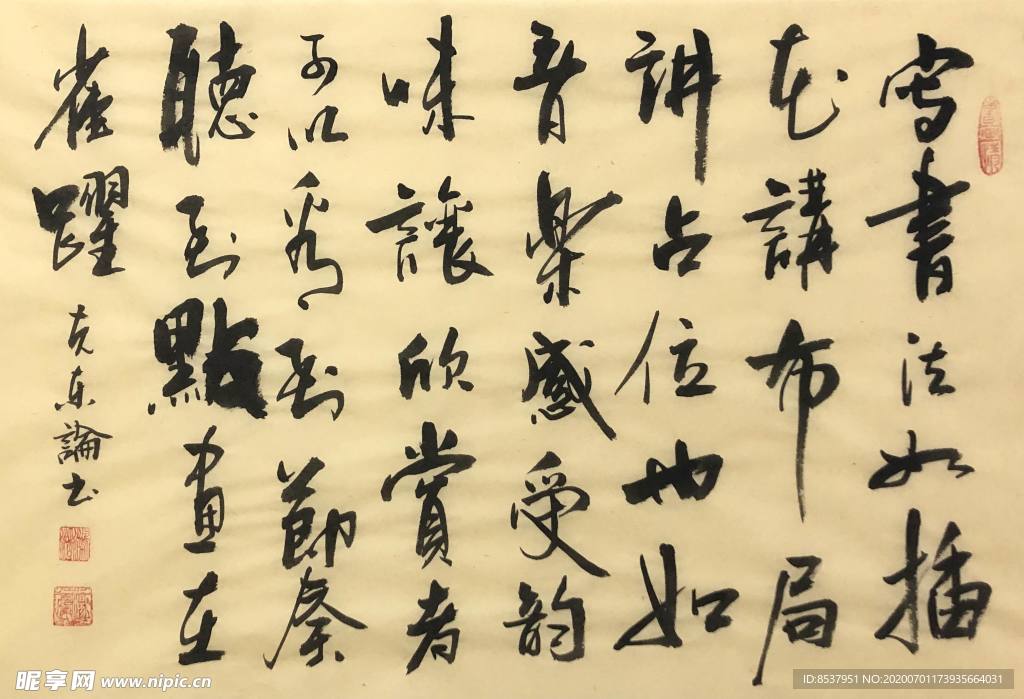 寫書法如插
花講布局
講占位也如
音樂感受韵
味讓欣賞者
可以看到節奏
聽到點畫在
雀躍
克東論書
昵享网 www.nipic.cn
ID:8537951 NO:20200701173935664031